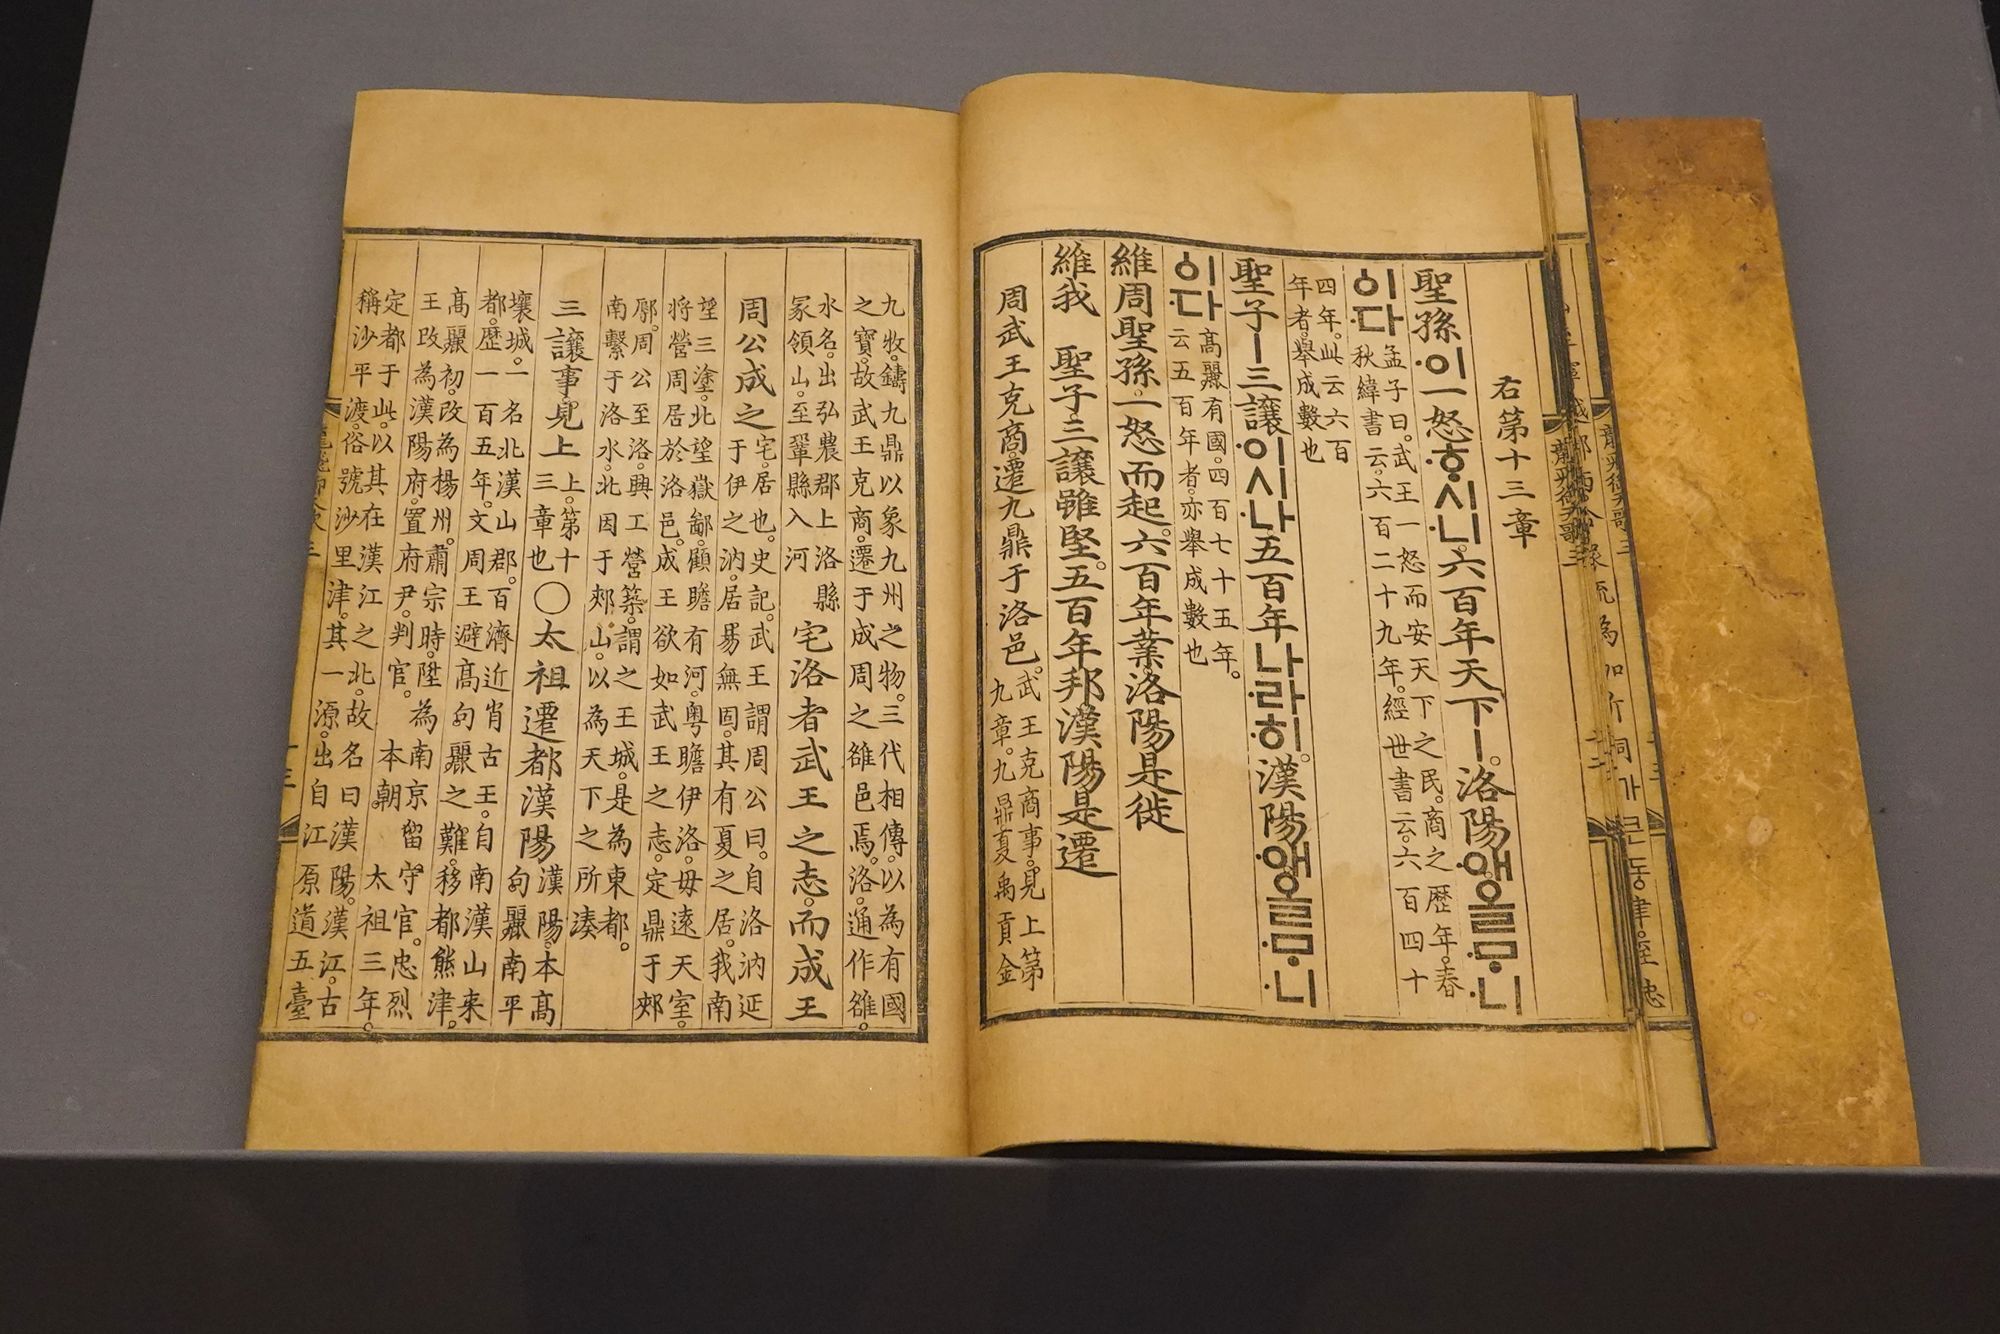 右第十三章
聖孫이一怒ᄒᆞ시니。六百年天下ㅣ。洛陽애올ᄆᆞ니
ᅌᅵ다
孟子曰。武王一怒而安天下之民。商之歷年。春
秋緯書云。六百二十九年。經世書云。六百四十
四年。此云六百
年者。舉成數也
聖子ㅣ三讓이시나五百年나라히。漢陽애올ᄆᆞ니
ᅌᅵ다
髙麗有國。四百七十五年。
云五百年者。亦舉成數也
維周聖孫。一怒而起。六百年業。洛陽是徙
維我 聖子。三讓雖堅。五百年邦。漢陽是遷
周武王克商。遷九鼎于洛邑。
武王克商事。見上第
九章。九鼎。夏禹貢金
九牧。鑄九鼎以象九州之物。三代相傳。以為有國
之寶。故武王克商。遷于成周之雒邑焉。洛。通作雒。
水名。出弘農郡上洛縣
冢領山。至鞏縣入河
宅洛者武王之志。而成王
周公成之
宅。居也。史記。武王謂周公曰。自洛汭延
于伊之汭。居昜無固。其有夏之居。我南
望三塗。北望嶽鄙。顧瞻有河。粤瞻伊洛。毋遠天室。
將營周居於洛邑。成王欲如武王之志。定鼎于郟
鄏。周公至洛。興工營築。謂之王城。是為東都。
南繫于洛水。北因于郟山。以為天下之所湊
三讓事。見上
上。第十
三章也
〇太祖遷都漢陽
漢陽。本髙
句麗南平
壤城。一名北漢山郡。百濟近肖古王。自南漢山来
都。歷一百五年。文周王避髙句麗之難。移都熊津。
髙麗初。改為楊州。肅宗時。陞為南京留守官。忠烈
王改為漢陽府。置府尹。判官。本朝 太祖三年。
定都于此。以其在漢江之北。故名曰漢陽。漢江。古
稱沙平渡。俗號沙里津。其一源。出自江原道五臺